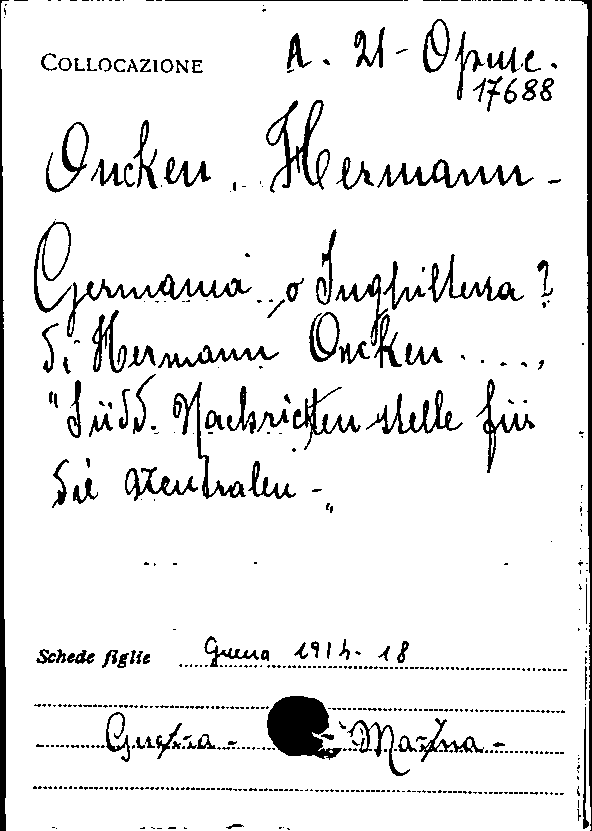 COLLOCAZIONE A. 21 - Opusc.
17688
Oncken, Hermann -
Germania o Inghilterra ?
di Hermann Oncken ....,
"Südd. Nachrichtenstelle für
die Zentralen - "
Schede figlie Guerra 1914-18
Guerra - Marina -